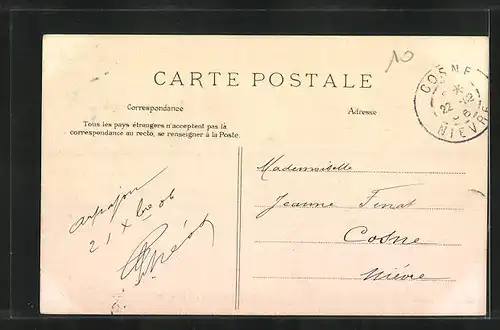 10
COSNE
22 -12
NIEVRE
CARTE POSTALE
Correspondance
Adresse
Tous les pays étrangers n'acceptent pas la
correspondance au recto, se renseigner à la Poste.
arpajon
21 Xbre 06
Mademoiselle
Jeanne
Cosne
Nièvre